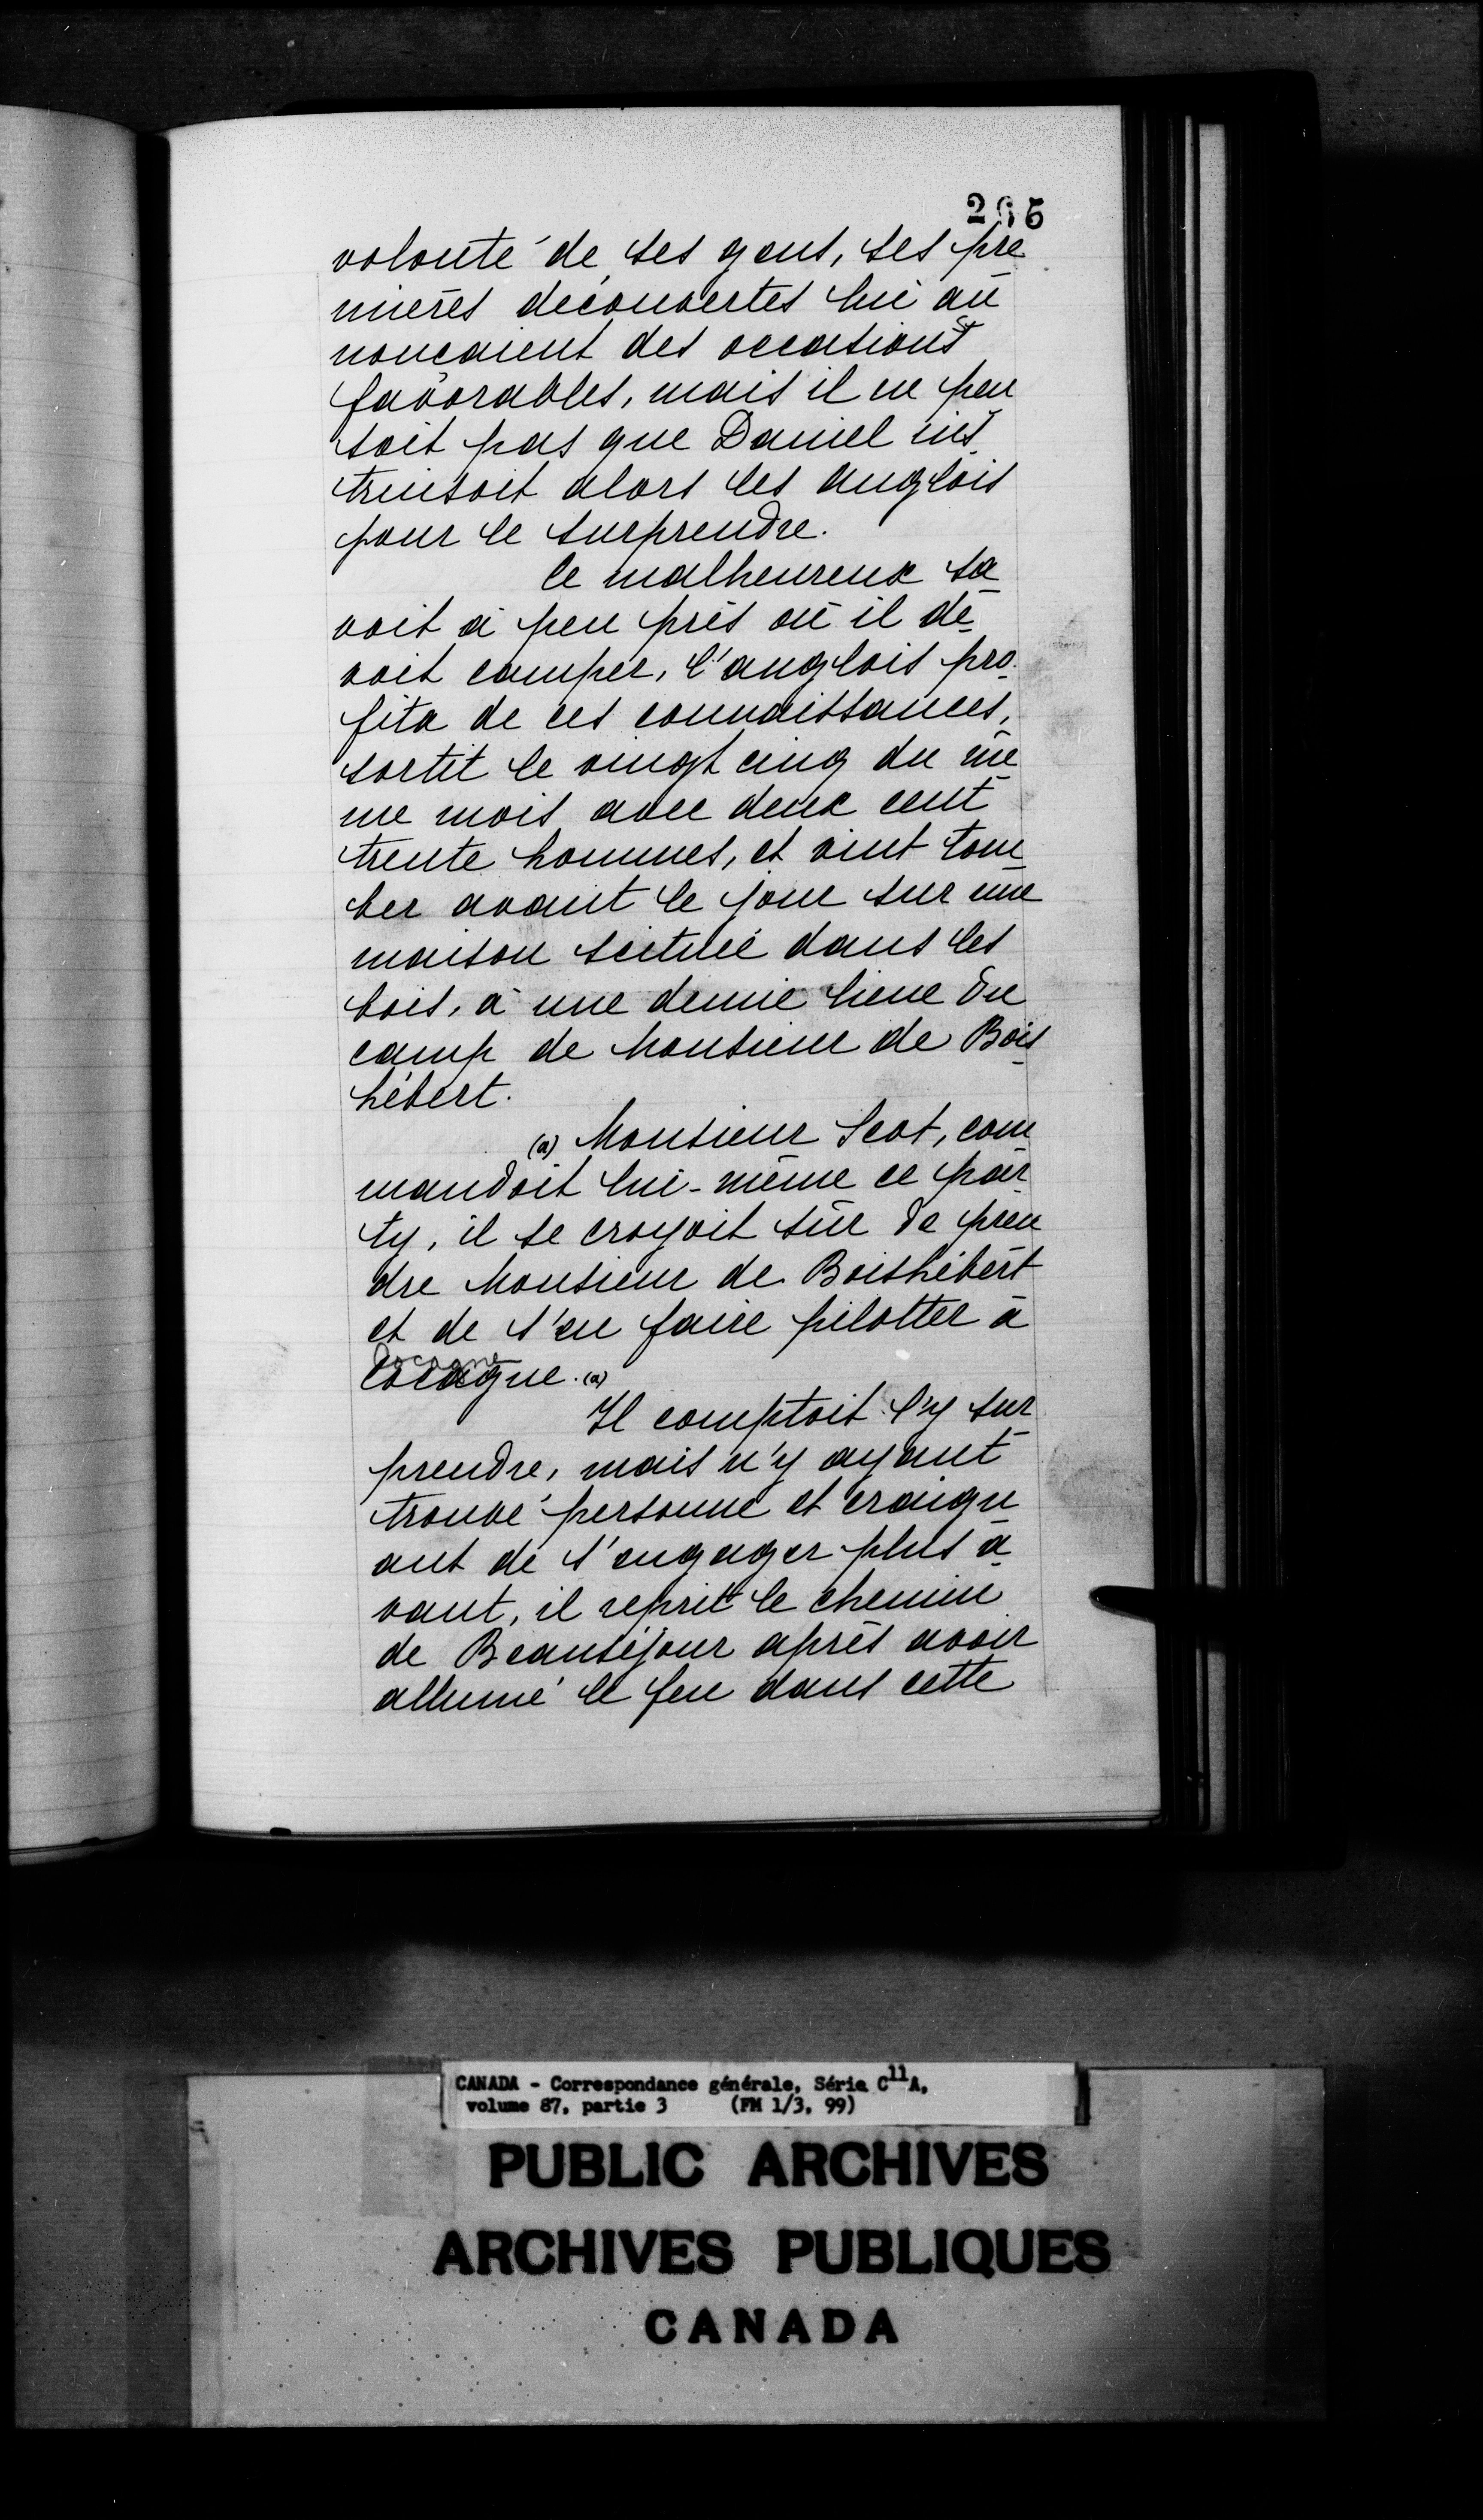 265
volonté de ses gens, ses pre
mières découvertes lui an
nonçaient des occasions
favorables, mais il ne pen
soit pas que Daniel ins
truisoit alors les anglois
pour le surprendre.
Ce malheureux sa
voit à peu près où il de
voit camper, l'anglois pro
fita de ces connaissances,
sortit le vingt cinq du mê
me mois avec deux cent
trente hommes, et vint tom
ber avant le jour sur une
maison scituée dans les
bois, à une demie lieue du
camp de Monsieur de Bois
hébert.
(a) Monsieur Scot, com
mandoit lui-même ce par
ty, il se croyoit sûr de pren
dre Monsieur de Boishébert
et de s'en faire pilotter à
Cocagne
Cocagne. (a)
Il comptoit l'y sur
prendre, mais n'y ayant
trouvé personne et craign
ant de s'engager plus a
vant, il reprit le chemin
de Beauséjour après avoir
allumé le feu dans cette
CANADA - Correspondance générale, Série C11A,
volume 87, partie 3 (FM 1/3, 99)
PUBLIC ARCHIVES
ARCHIVES PUBLIQUES
CANADA